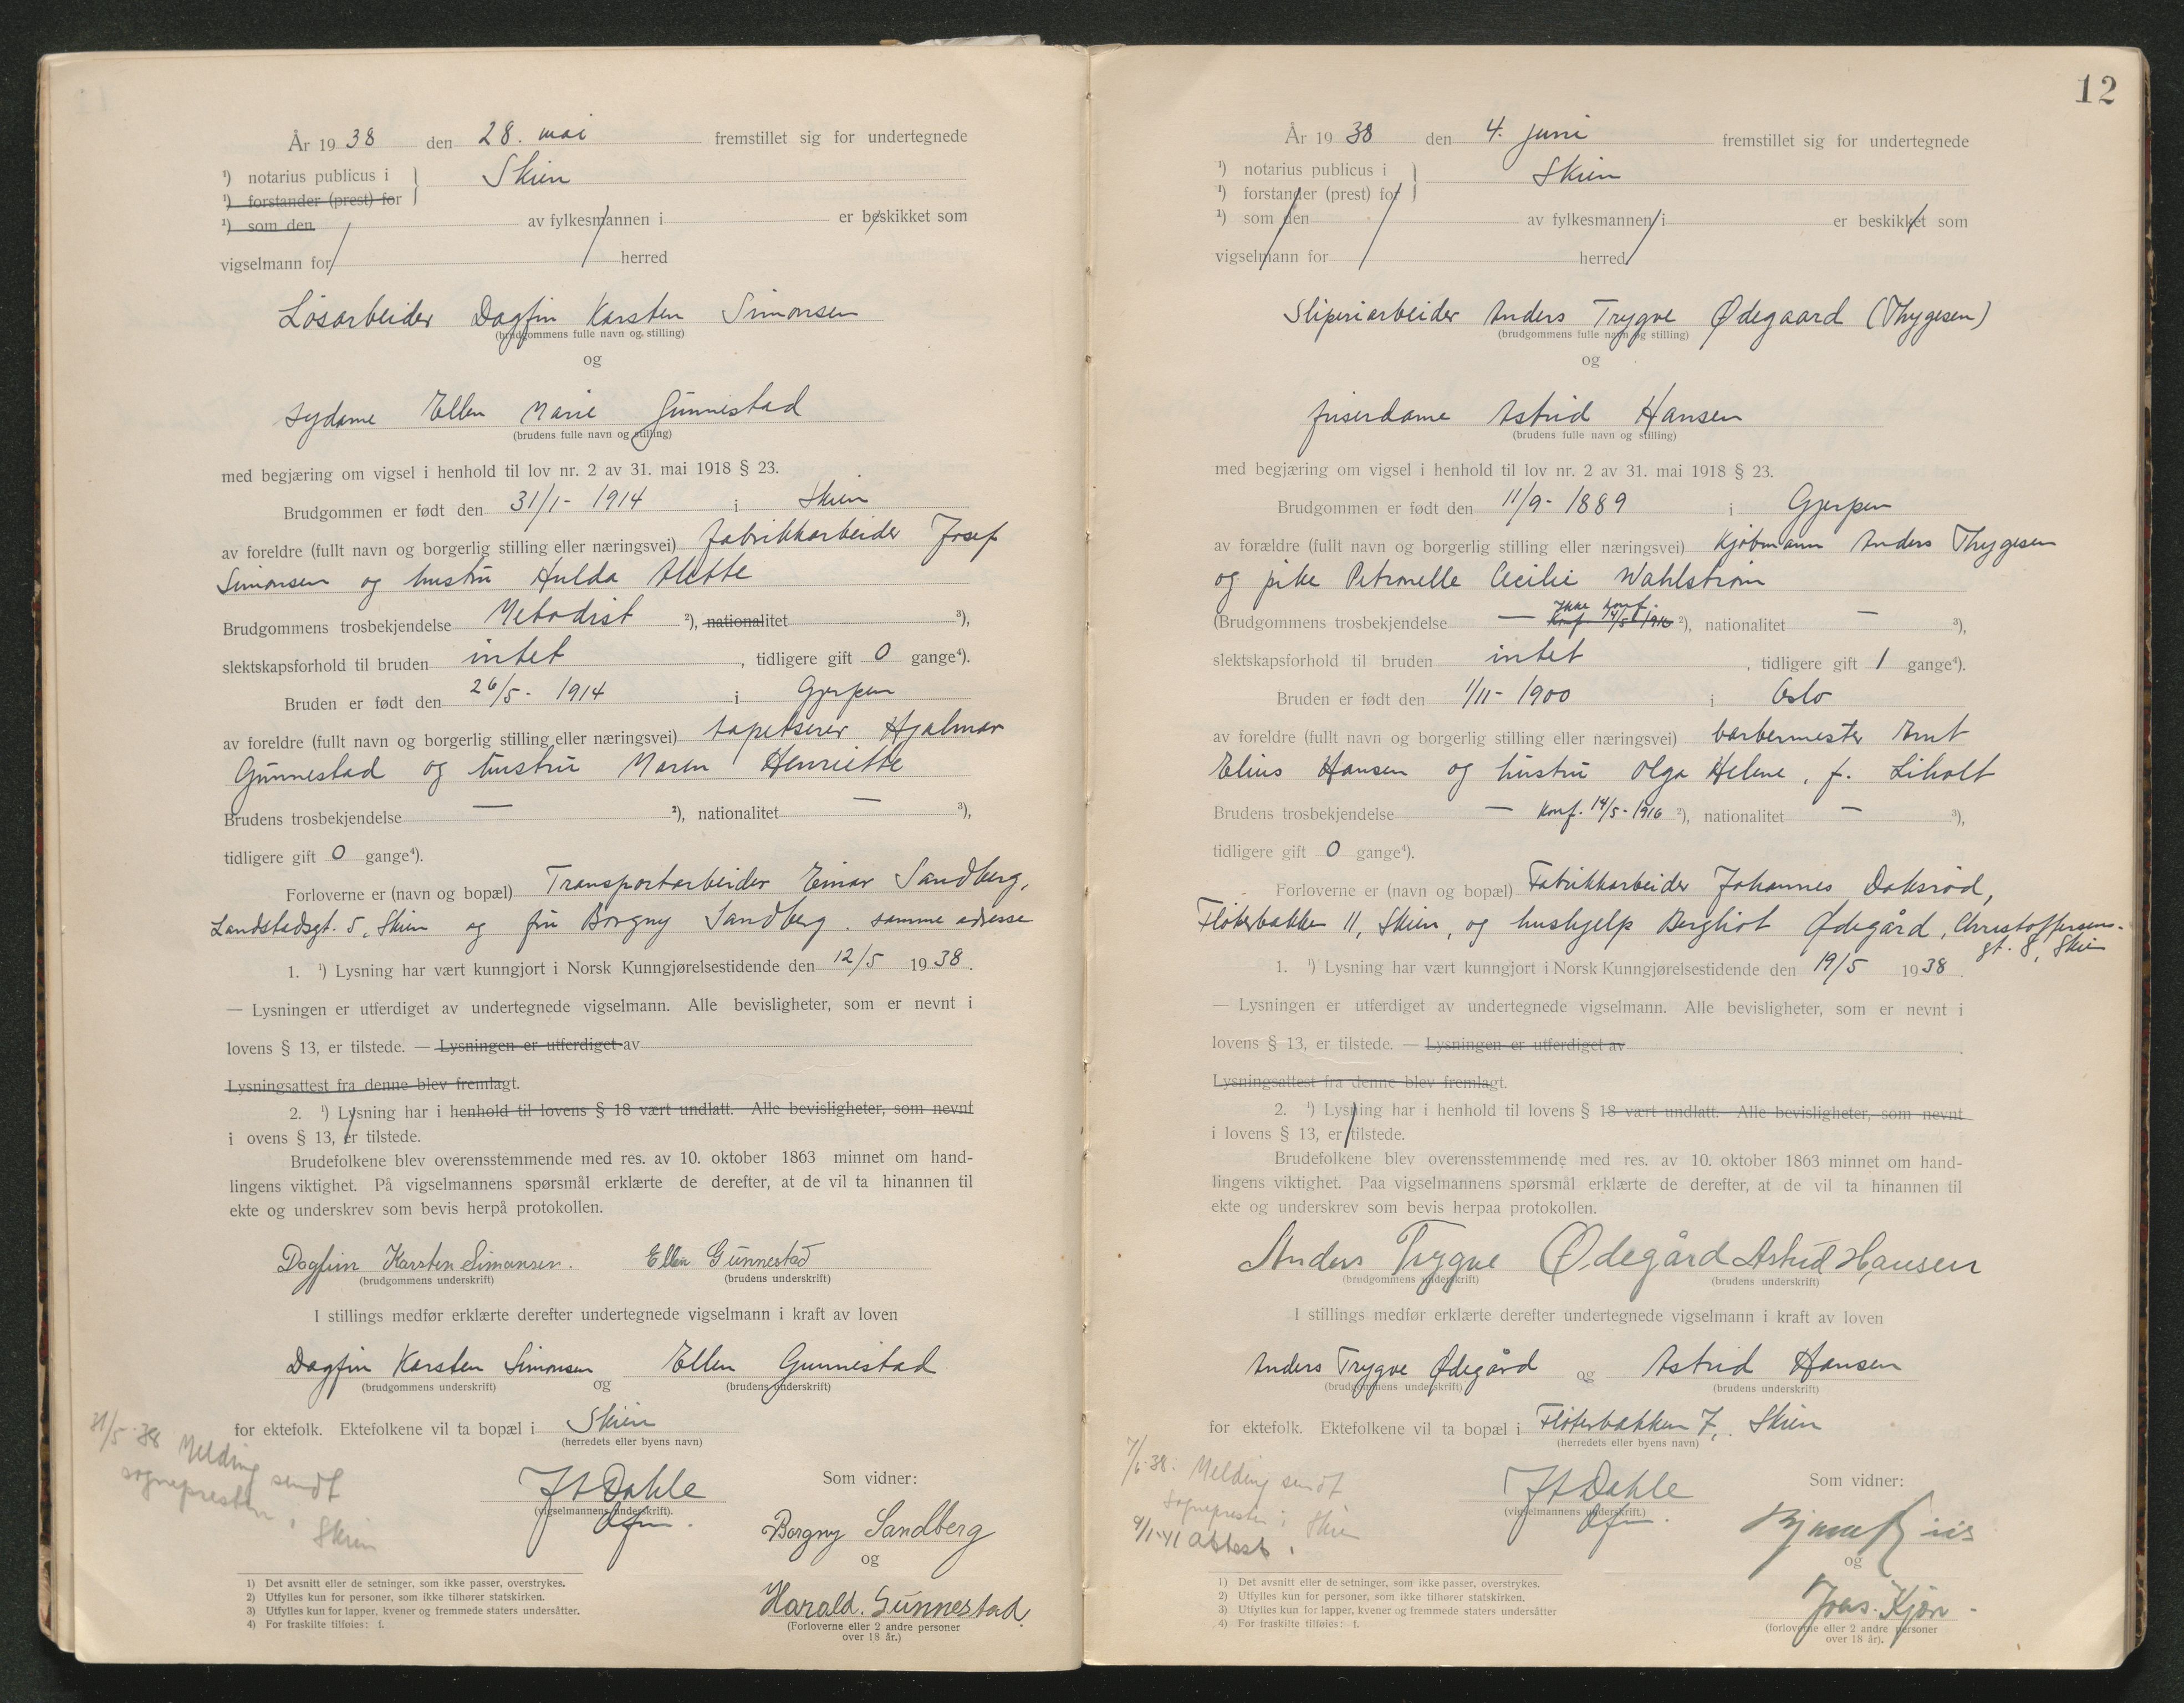 År 1938 den 28. mai fremstillet sig for undertegnede
¹) notarius publicus i } Skien
¹) forstander (prest) for
¹) som den av fylkesmannen i er beskikket som
vigselmann for herred
Løsarbeider Dagfin Karsten Simonsen
(brudgommens fulle navn og stilling)
og
sydame Ellen Marie Gunnestad
(brudens fulle navn og stilling)
med begjæring om vigsel i henhold til lov nr. 2 av 31. mai 1918 § 23.
Brudgommen er født den 31/1- 1914 i Skien
av foreldre (fullt navn og borgerlig stilling eller næringsvei) fabrikkarbeider Josef
Simonsen og hustru Hulda Alette
Brudgommens trosbekjendelse Metodist ²), nationalitet ³),
slektskapsforhold til bruden intet, tidligere gift 0 gange⁴).
Bruden er født den 26/5- 1914 i Gjerpen
av foreldre (fullt navn og borgerlig stilling eller næringsvei) tapetserer Hjalmar
Gunnestad og hustru Maren Henriette
Brudens trosbekjendelse — ²), nationalitet — ³),
tidligere gift 0 gange⁴).
Forloverne er (navn og bopæl) Transportarbeider Einar Sandberg,
Landstadsgt. 5, Skien og fru Borgny Sandberg. samme adresse
1. ¹) Lysning har vært kunngjort i Norsk Kunngjørelsestidende den 12/5 1938.
— Lysningen er utferdiget av undertegnede vigselmann. Alle bevisligheter, som er nevnt i
lovens § 13, er tilstede. — Lysningen er utferdiget av
Lysningsattest fra denne blev fremlagt.
2. ¹) Lysning har i henhold til lovens § 18 vært undlatt. Alle bevisligheter, som nevnt
i ovens § 13, er tilstede.
Brudefolkene blev overensstemmende med res. av 10. oktober 1863 minnet om hand-
lingens viktighet. På vigselmannens spørsmål erklærte de derefter, at de vil ta hinannen til
ekte og underskrev som bevis herpå protokollen.
Dagfinn Karsten Simonsen. Ellen Gunnestad
(brudgommens underskrift) (brudens underskrift)
I stillings medfør erklærte derefter undertegnede vigselmann i kraft av loven
Dagfin Karsten Simonsen og Ellen Gunnestad
(brudgommens underskrift) (brudens underskrift)
for ektefolk. Ektefolkene vil ta bopæl i Skien
(herredets eller byens navn)
31/5-38 Melding sendt
sognepresten i Skien
Dahle
(vigselmannens underskrift).
Som vidner:
Borgny Sandberg
og
Harald. Gunnestad.
(Forloverne eller 2 andre personer
over 18 år.)
1) Det avsnitt eller de setninger, som ikke passer, overstrykes.
2) Utfylles kun for personer, som ikke tilhører statskirken.
3) Utfylles kun for lapper, kvener og fremmede staters undersåtter.
4) For fraskilte tilføies: f.
12
År 1938 den 4. juni fremstillet sig for undertegnede
¹) notarius publicus i } Skien
¹) forstander (prest) for
¹) som den av fylkesmannen i er beskikket som
vigselmann for herred
Sliperiarbeider Anders Trygve Ødegaard (Thygesen)
(brudgommens fulle navn og stilling)
og
friserdame Astrid Hansen
(brudens fulle navn og stilling)
med begjæring om vigsel i henhold til lov nr. 2 av 31. mai 1918 § 23.
Brudgommen er født den 11/9- 1889 i Gjerpen
av forældre (fullt navn og borgerlig stilling eller næringsvei) kjøbmann Anders Thygesen
og pike Petronelle Cecilie Wahlstrøm
Ikke konf.
(Brudgommens trosbekjendelse — Konf. 14/5 1916 ²), nationalitet — ³),
slektskapsforhold til bruden intet, tidligere gift 1 gange⁴).
Bruden er født den 1/11- 1900 i Oslo
av foreldre (fullt navn og borgerlig stilling eller næringsvei) barbermester Arnt
Elius Hansen og hustru Olga Helene, f. Liholt
Brudens trosbekjendelse — Konf. 14/5-1916 ²), nationalitet — ³),
tidligere gift 0 gange⁴).
Forloverne er (navn og bopæl) Fabrikkarbeider Johannes Doksrød,
Fløterbakken 11, Skien, og hushjelp Bergliot Ødegård, Christoffersens-
gt. 8, Skien
1. ¹) Lysning har vært kunngjort i Norsk Kunngjørelsestidende den 19/5 1938.
— Lysningen er utferdiget av undertegnede vigselmann. Alle bevisligheter, som er nevnt i
lovens § 13, er tilstede. — Lysningen er utferdiget av
Lysningsattest fra denne blev fremlagt.
2. ¹) Lysning har i henhold til lovens § 18 vært undlatt. Alle bevisligheter, som nevnt
i lovens § 13, er tilstede.
Brudefolkene blev overensstemmende med res. av 10. oktober 1863 minnet om hand-
lingens viktighet. Paa vigselmannens spørsmål erklærte de derefter, at de vil ta hinannen til
ekte og underskrev som bevis herpaa protokollen.
Anders Trygve Ødegård Astrid Hansen
(brudgommens underskrift) (brudens underskrift)
I stillings medfør erklærte derefter undertegnede vigselmann i kraft av loven
Anders Trygve Ødegård og Astrid Hansen
(brudgommens underskrift) (brudens underskrift)
for ektefolk. Ektefolkene vil ta bopæl i Fløterbakken 7, Skien
(herredets eller byens navn)
7/6-38: Melding sendt
sognepresten i Skien
9/1-41 Attest.
Dahle
(vigselmannens underskrift.)
Som vidner:
og
(forloverne eller 2 andre personer
over 18 år).
1) Det avsnitt eller de setninger, som ikke passer, overstrykes.
2) Utfylles kun for personer, som ikke tilhører statskirken.
3) Utfylles kun for lapper, kvener og fremmede staters undersåtter
4) For fraskilte tilføies: f.